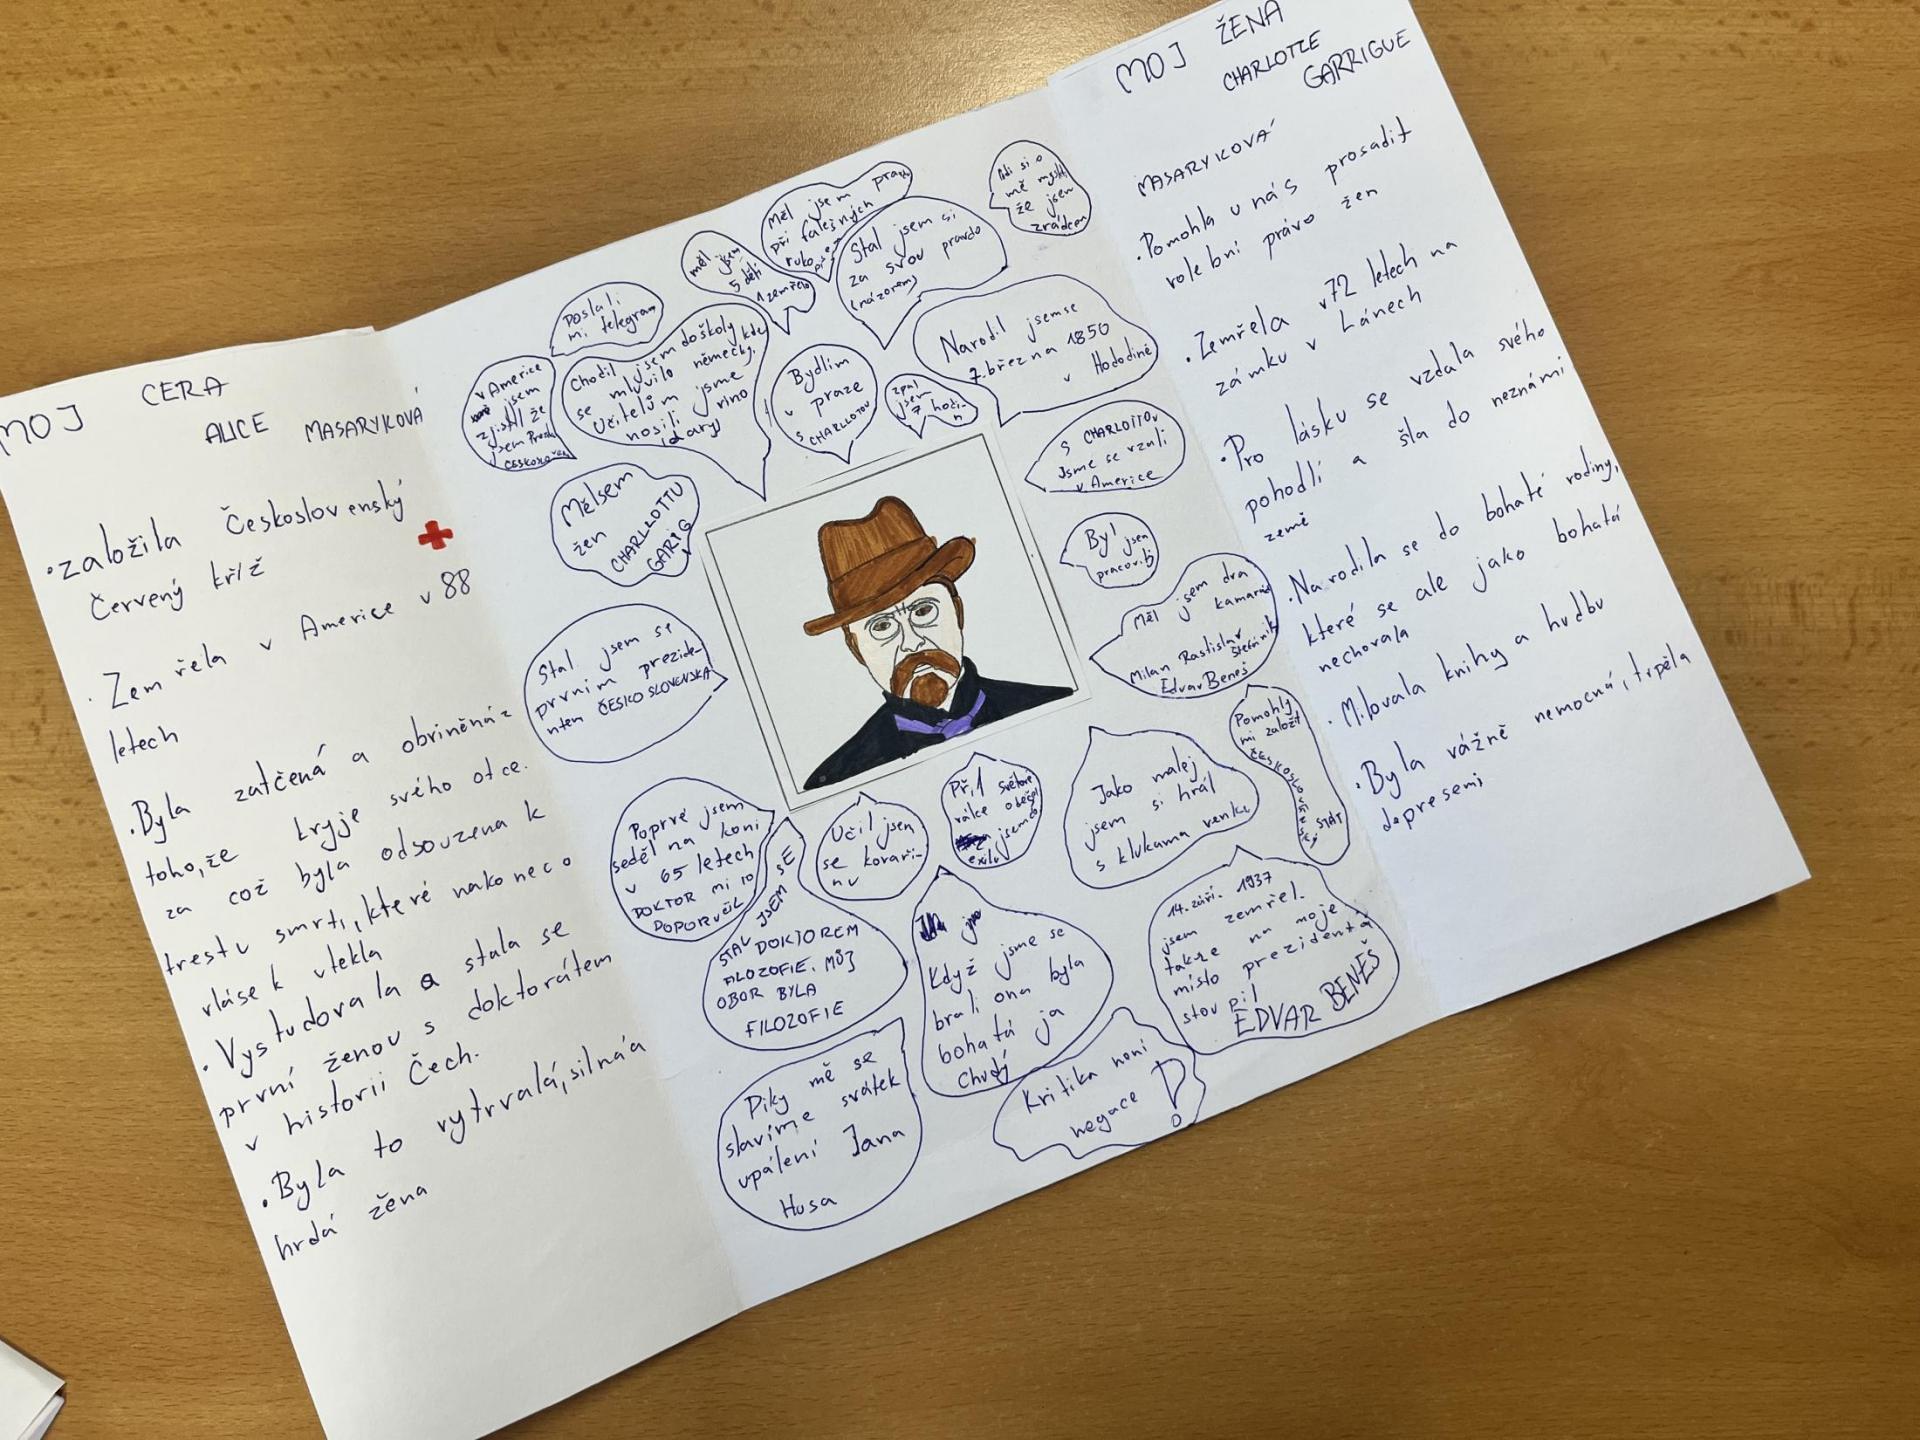 MOJ CERA
ALICE MASARYKOVÁ
• založila Československý
Červený kříž
• Zemřela v Americe v 88
letech
• Byla zatčená a obviněná z
toho, že kryje svého otce.
za což byla odsouzena k
trestu smrti, které nakonec o
vlásek utekla
• Vystudovala a stala se
první ženou s doktorátem
v historii Čech.
• Byla to vytrvalá, silná a
hrdá žena
v Americe
jsem
zjistil že
jsem
Poslali
mi telegram
Chodil jsem doškoly kde
se mluvilo německy.
Učitelům jsme
nosili víno
(dary)
měl jsem
5 dětí
1 zemřelo
Měl jsem
při falešných
Stal jsem si
za svou pravdo
(názorem)
lidi si o
mě myslí
že jsem
zrádcem
Narodil jsemse
7. března 1850
v Hododíně
Bydlím
v praze
s CHARLOTOU
zpal
jsem
7 hodi-
n
S CHARLOTTOV
Jsme se vzali
v Americe
Mělsem
žen
CHARLLOTTU
GARIG
Byl jsem
pracovitý
Měl jsem dva
kamarád
Milan Rastislav
Štefánik
Edvar Beneš
Stal jsem se
prvním prezide-
ntem ČESKOSLOVENSKA
Pomohly
mi založit
ČESKOSLOVENSKÝ
STÁT
Poprvé jsem
seděl na koni
v 65 letech
DOKTOR mi to
DOPORUČIL
Učil jsem
se kovaři-
nu
Př, 1 světové
válce
jsem do
exilu
Jako malej
jsem si hrál
s klukama venku
STAL JSEM SE
DOKTOREM
FILOZOFIE. MŮJ
OBOR BYLA
FILOZOFIE
Když jsme se
brali ona byla
bohatá ja
chudý
14. září. 1937
jsem zemřel.
takže na moje
místo prezidenta
stoupil
EDVAR BENEŠ
Díky mě se
slavíme svátek
upálení Jana
Husa
Kritika není
negace !
MOJ ŽENA
CHARLOTTE
GARRIGUE
MASARYKOVÁ
• Pomohla u nás prosadit
volební právo žen
• Zemřela v 72 letech na
zámku v Lánech
• Pro lásku se vzdala svého
pohodlí a šla do neznámí
země
• Narodila se do bohaté rodiny,
které se ale jako bohatá
nechovala
• Milovala knihy a hudbu
• Byla vážně nemocná, trpěla
depresemi